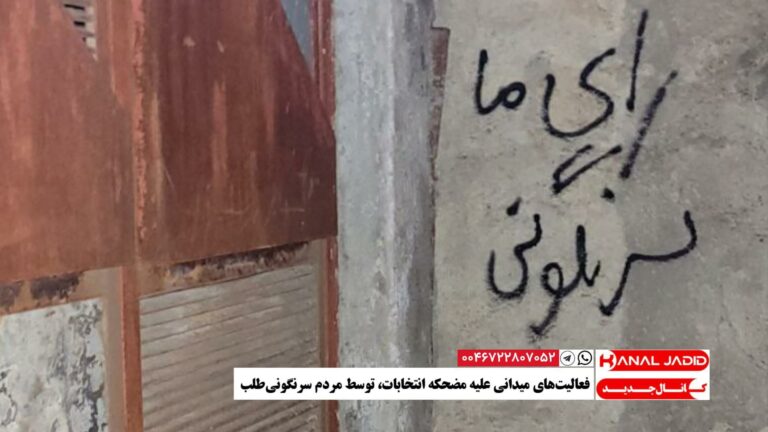 رای ما
سرنگونی
۰۰۴۶۷۲۲۸۰۷۰۵۲
KANAL JADID
کانال جدید
فعالیت‌های میدانی علیه مضحکه انتخابات، توسط مردم سرنگونی‌طلب